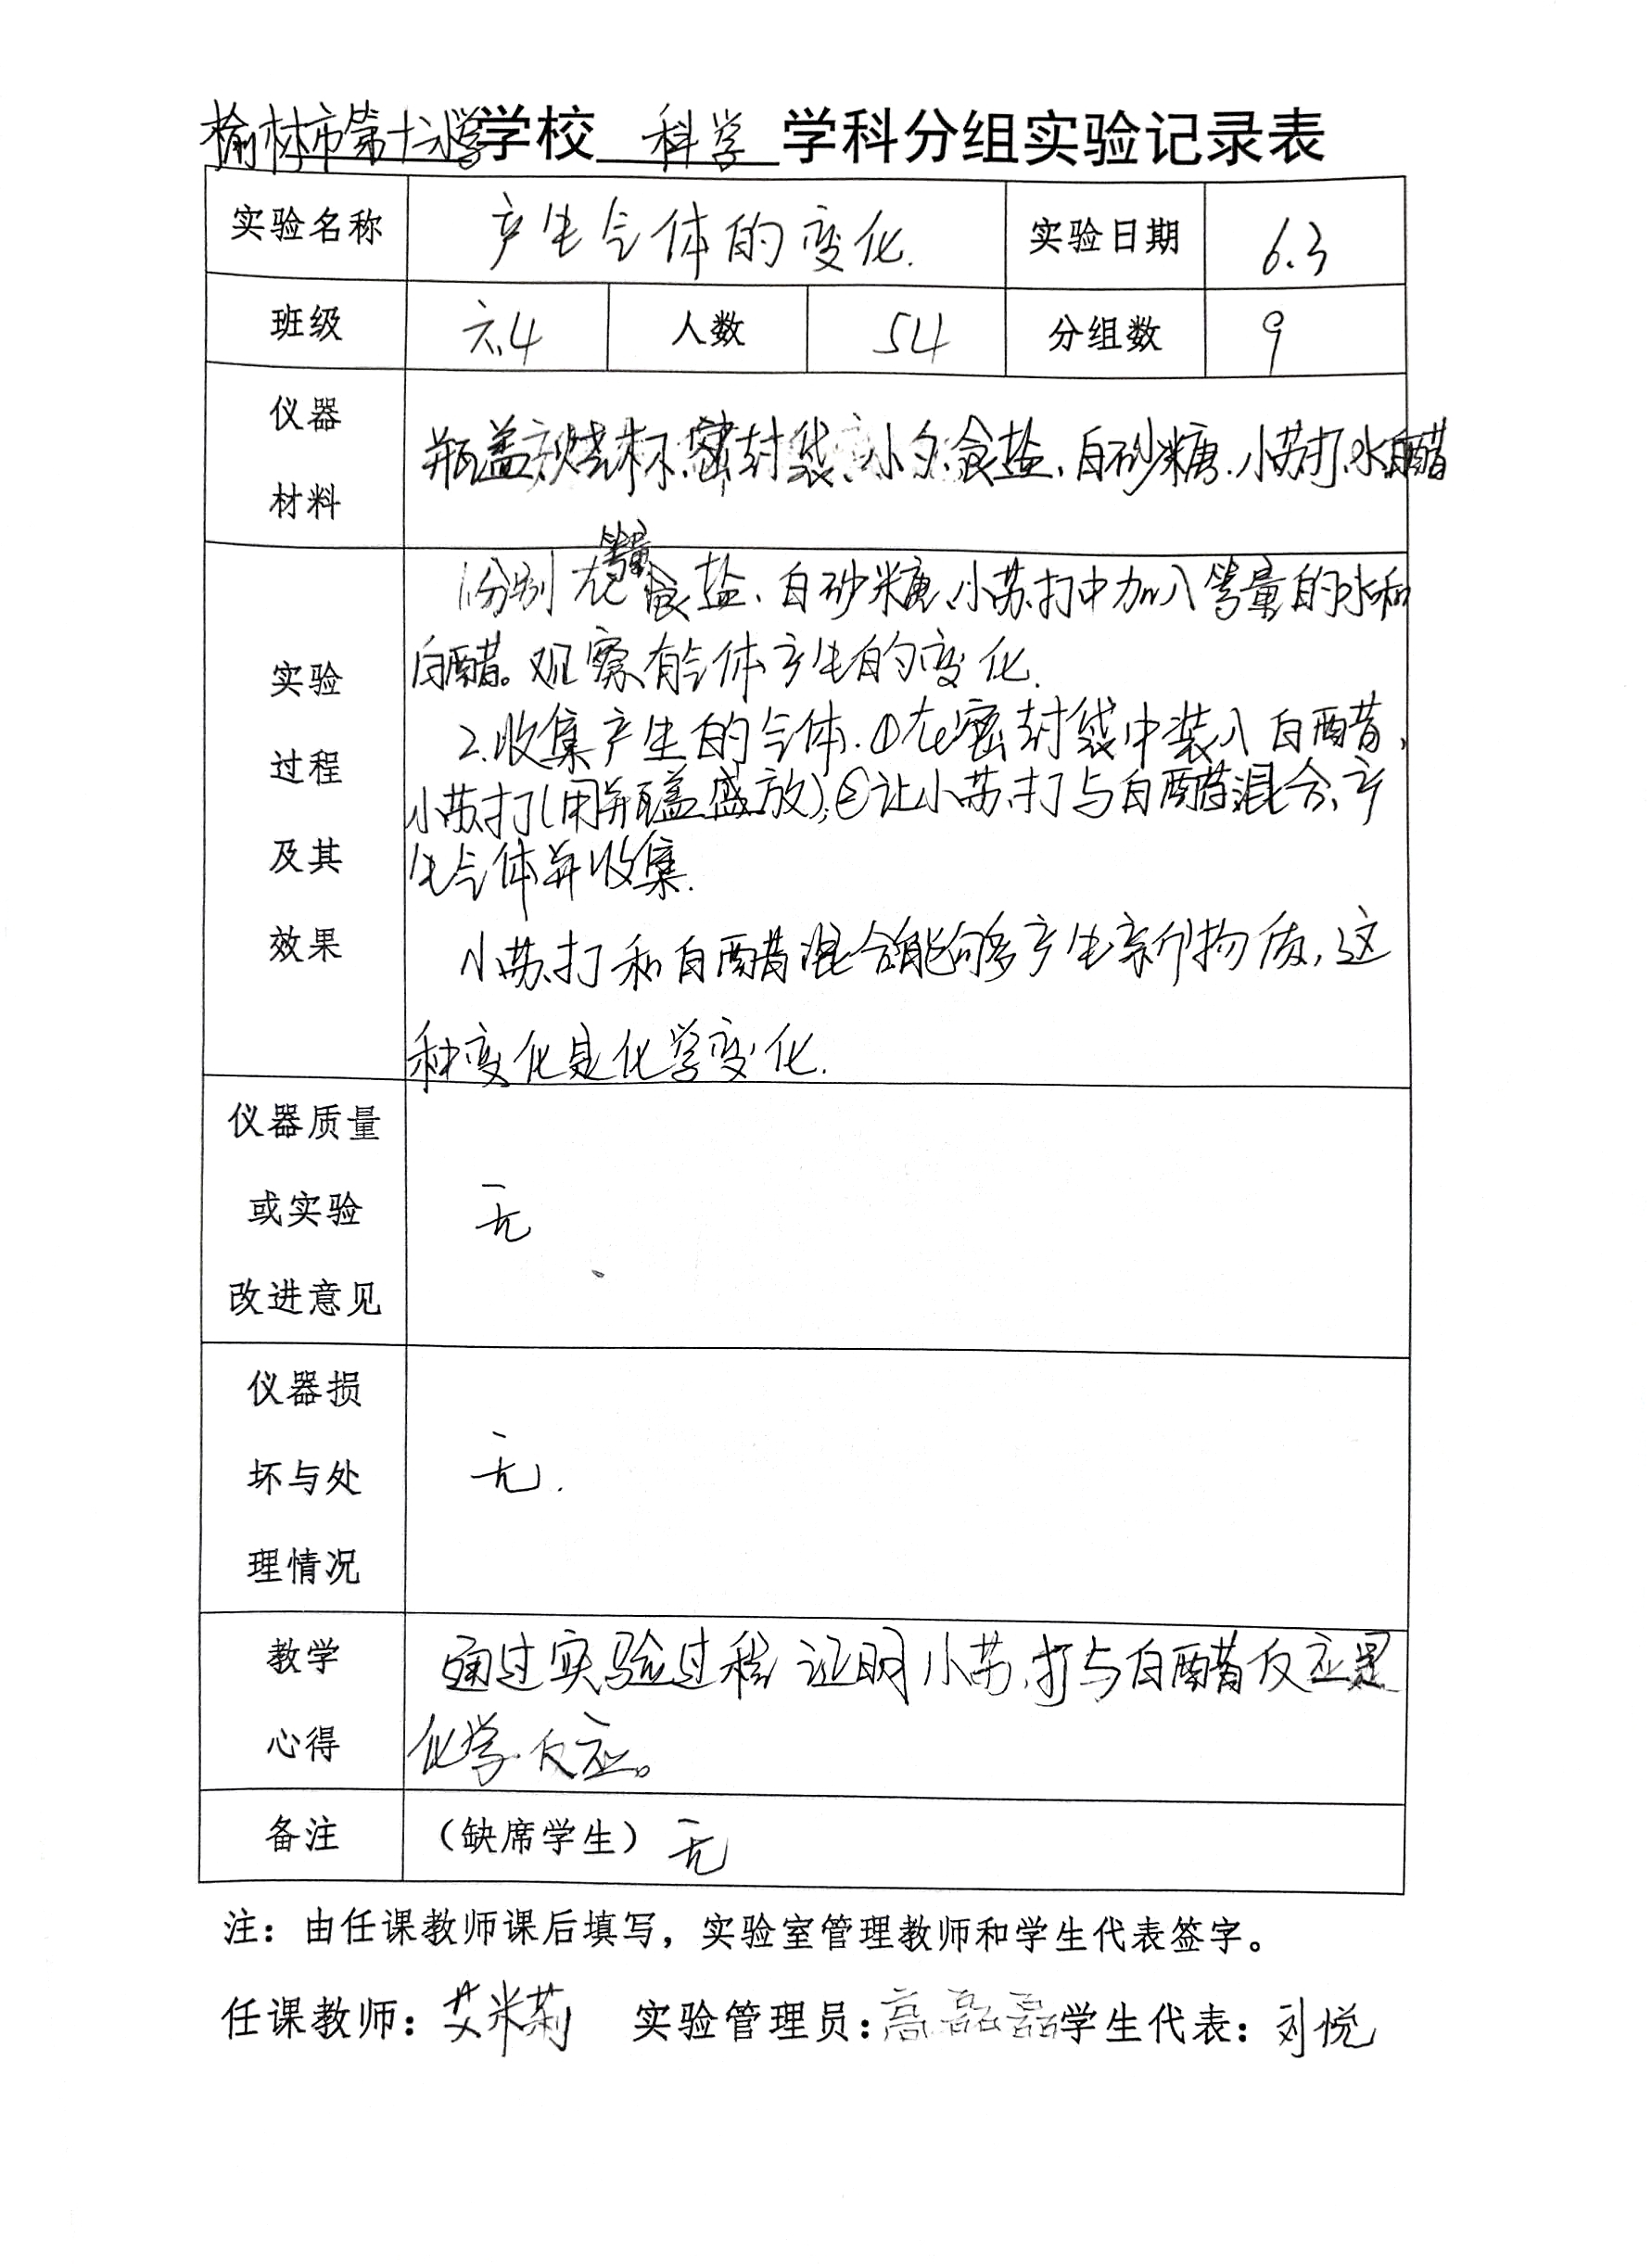 榆林市第十小学学校 科学 学科分组实验记录表
实验名称 产生气体的变化. 实验日期 6.3
班级 六.4 人数 54 分组数 9
仪器
材料
瓶盖、烧杯、密封袋、小勺、食盐、白砂糖、小苏打、水、白醋
实验
过程
及其
效果
等量
1.分别在食盐、白砂糖、小苏打中加入等量的水和
白醋。观察有气体产生的变化.
2.收集产生的气体.①在密封袋中装入白醋,
小苏打(用瓶盖盛放);②让小苏打与白醋混合,产
生气体并收集.
小苏打和白醋混合能够产生新物质,这
种变化是化学变化.
仪器质量
或实验
改进意见
无
仪器损
坏与处
理情况
无.
教学
心得
通过实验过程证明小苏打与白醋反应是
化学反应。
备注 (缺席学生) 无
注：由任课教师课后填写，实验室管理教师和学生代表签字。
任课教师：艾米莉 实验管理员：高磊磊 学生代表：刘悦